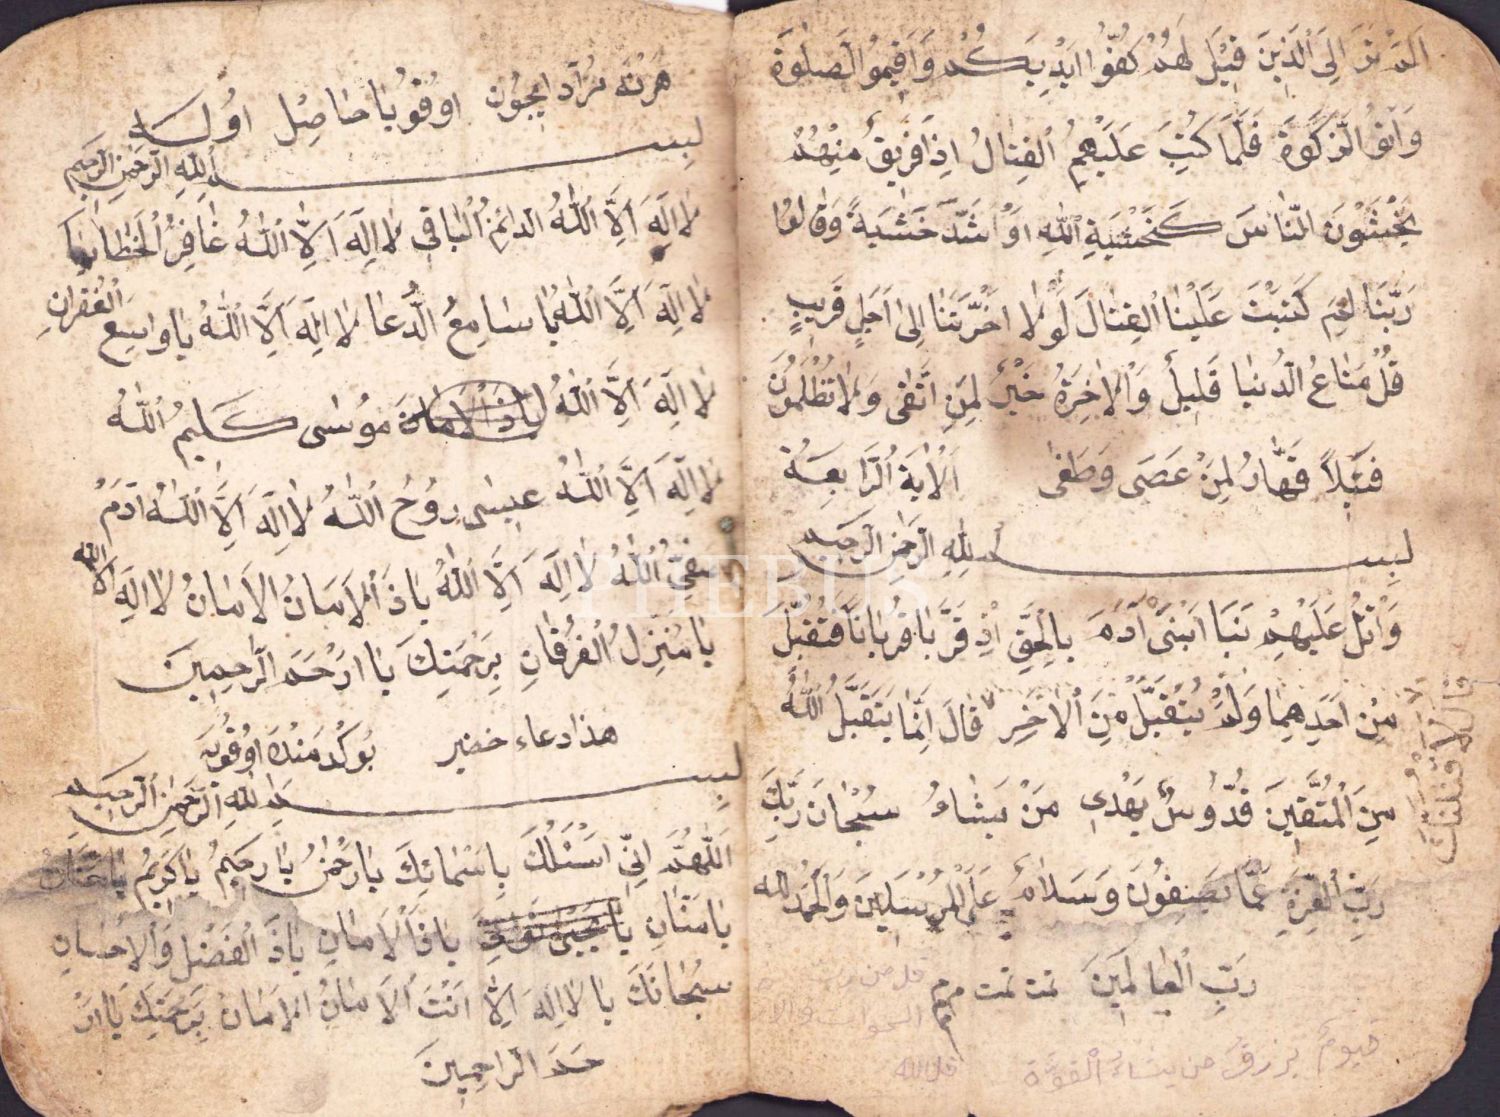 اَلَمْ تَرَ اِلَى الَّذِينَ قِيلَ لَهُمْ كُفُّوا اَيْدِيَكُمْ وَاَقِيمُوا الصَّلٰوةَ
وَاٰتُوا الزَّكٰوةَ فَلَمَّا كُتِبَ عَلَيْهِمُ الْقِتَالُ اِذَا فَرِيقٌ مِنْهُمْ
يَخْشَوْنَ النَّاسَ كَخَشْيَةِ اللّٰهِ اَوْ اَشَدَّ خَشْيَةً وَقَالُوا
رَبَّنَا لِمَ كَتَبْتَ عَلَيْنَا الْقِتَالَ لَوْلَا اَخَّرْتَنَا اِلٰى اَجَلٍ قَرِيبٍ
قُلْ مَتَاعُ الدُّنْيَا قَلِيلٌ وَالْاٰخِرَةُ خَيْرٌ لِمَنِ اتَّقٰى وَلَا تُظْلَمُونَ
فَتِيلاً قَهَّارُ لِمَنْ عَصَى وَطَغٰى اَلْاٰيَةُ الرَّابِعَةُ
بِسْمِ اللّٰهِ الرَّحْمٰنِ الرَّحِيمِ
وَاتْلُ عَلَيْهِمْ نَبَاَ ابْنَىْ اٰدَمَ بِالْحَقِّ اِذْ قَرَّبَا قُرْبَانًا فَتُقُبِّلَ
مِنْ اَحَدِهِمَا وَلَمْ يُتَقَبَّلْ مِنَ الْاٰخَرِ قَالَ اِنَّمَا يَتَقَبَّلُ اللّٰهُ
قَالَ لَاَقْتُلَنَّكَ
مِنَ الْمُتَّقِينَ قُدُّوسٌ يَهْدِى مَنْ يَشَاءُ سُبْحَانَ رَبِّكَ
رَبِّ الْعِزَّةِ عَمَّا يَصِفُونَ وَسَلَامٌ عَلَى الْمُرْسَلِينَ وَالْحَمْدُ لله
رَبِّ الْعَالَمِينَ تمت تمت م م م
قل من رب
السموات والار
قل الله
قيوم يرزق من يشاء القوة
هرنه مراد ايچون اوقويا حاصل اولـ
بِسْمِ اللّٰهِ الرَّحْمٰنِ الرَّحِيمِ
لَا اِلٰهَ اِلَّا اللّٰهُ الدَّائِمُ الْبَاقِى لَا اِلٰهَ اِلَّا اللّٰهُ غَافِرُ الْخَطَايَا
لَا اِلٰهَ اِلَّا اللّٰهُ يَا سَامِعَ الدُّعَا لَا اِلٰهَ اِلَّا اللّٰهُ يَا وَاسِعَ الْغُفْرَانِ
لَا اِلٰهَ اِلَّا اللّٰهُ مُوسٰى كَلِيمُ اللّٰهُ
لَا اِلٰهَ اِلَّا اللّٰهُ عِيسٰى رُوحُ اللّٰهُ لَا اِلٰهَ اِلَّا اللّٰهُ اٰدَمُ
صَفِىُّ اللّٰهُ لَا اِلٰهَ اِلَّا اللّٰهُ يَا ذَا الْاَمَانُ الْاَمَانُ لَا اِلٰهَ اِلَّا اللّٰه
يَا مُنَزِّلَ الْفُرْقَانِ بِرَحْمَتِكَ يَا اَرْحَمَ الرَّاحِمِينَ
هذا دعاء خضير بوكدمنده اوقويه
بِسْمِ اللّٰهِ الرَّحْمٰنِ الرَّحِيمِ
اَللّٰهُمَّ اِنِّى اَسْئَلُكَ بِاَسْمَائِكَ يَا رَحْمٰنُ يَا رَحِيمُ يَا كَرِيمُ يَا حَنَّانُ
يَا مَنَّانِ يَا ذَا الْاَمَانِ يَا ذَا الْفَضْلِ وَالْاِحْسَانِ
سُبْحَانَكَ يَا لَا اِلٰهَ اِلَّا اَنْتَ الْاَمَانُ الْاَمَانُ بِرَحْمَتِكَ يَا اَرْ
حَمَ الرَّاحِمِينَ
PHEBUS